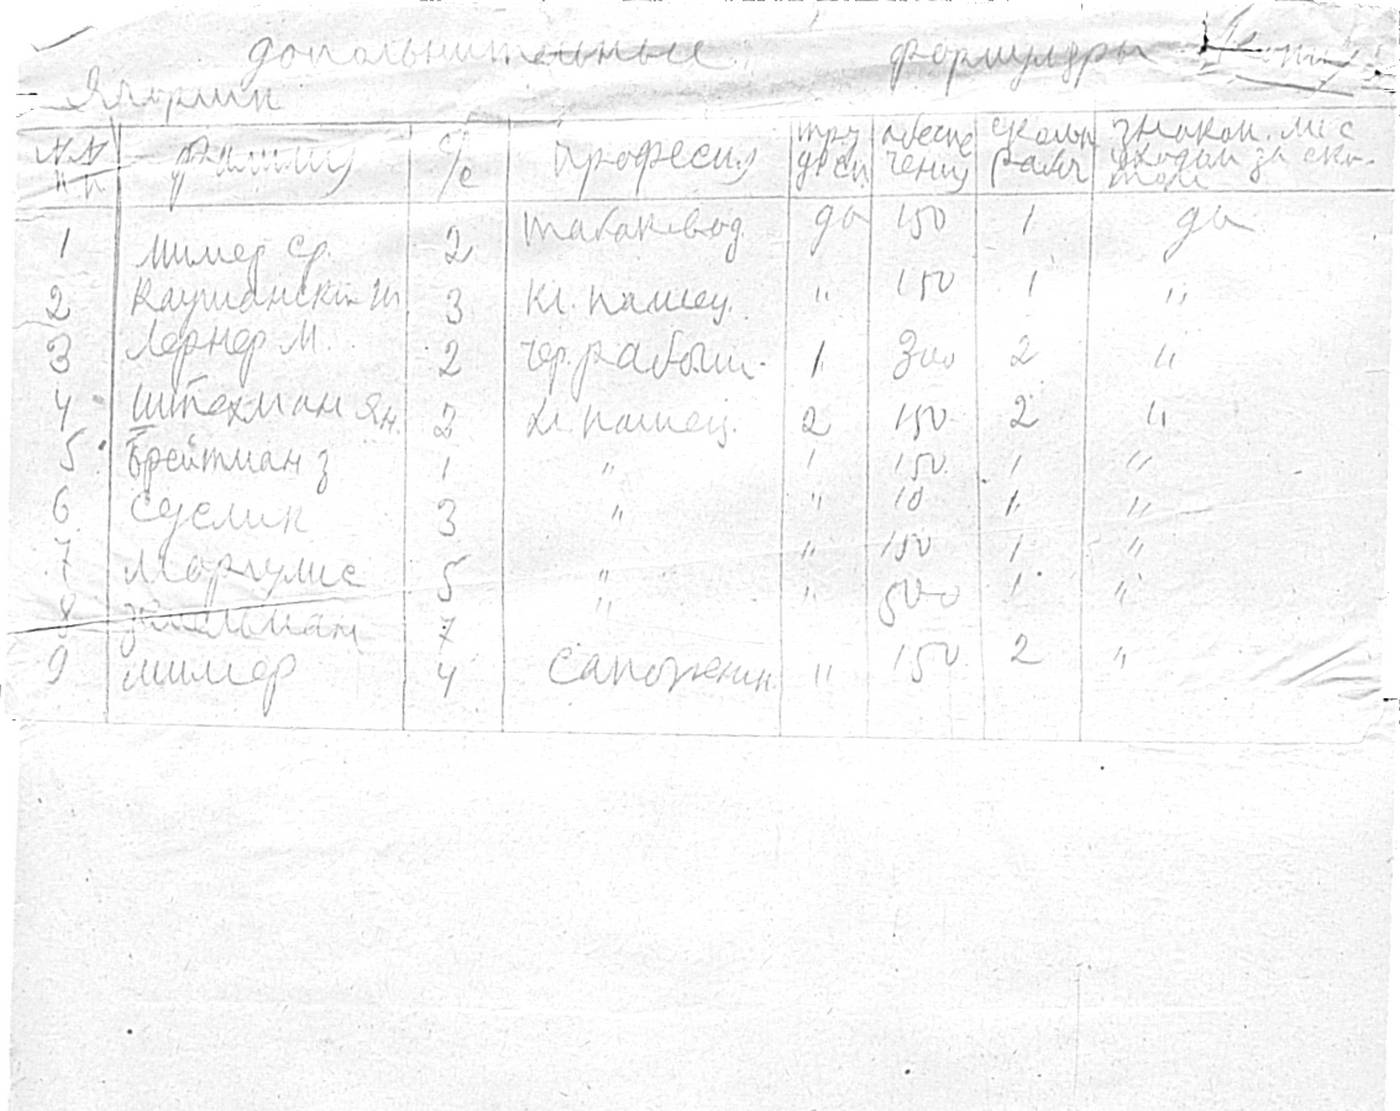 дополнительные формуляры
Ягорлик
№№ пп фамилия с/с Професия тру досп. обеспе чения сколько рабоч знаком. ли с уходом за ско- том
1 Милер Ср. 2 табаковод да 150 1 да
2 Каушанский Ш 3 Кл. пашец. " 150 1 "
3 Лернер М. 2 чер. рабоч. 1 300 2 "
4 Штехман Ян. 2 Кл. пашец. 2 150 2 "
5 Брейтман З 1 " 1 150 1 "
6 Суслик 3 " " 10 1 "
7 Маргулис 5 " " 150 1 "
8 Зильман 7 " " 500 1 "
9 Милер 4 Сапожник " 150 2 "